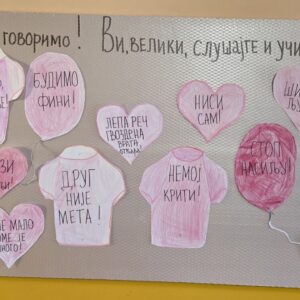 говоримо! Ви, велики, слушајте и учи
БУДИМО
ФИНИ!
ЛЕПА РЕЧ
ГВОЗДЕНА
ВРАТА
НИСИ
САМ!
ДРУГ
НИЈЕ
МЕТА!
НЕМОЈ
КРИТИ!
СТОП
НАСИЉУ!
МАЛО
ЈЕ